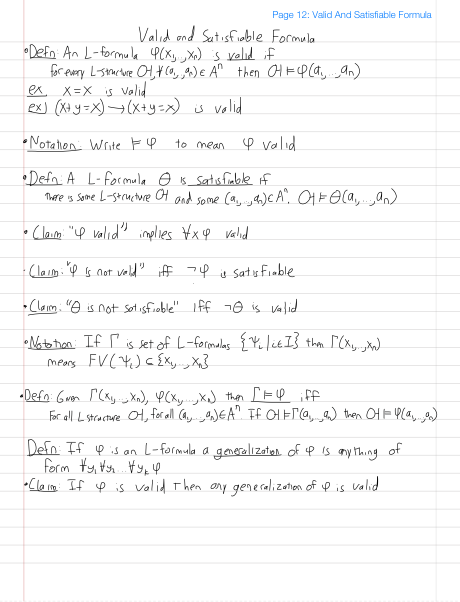 Page 12: Valid And Satisfiable Formula
Valid and Satisfiable Formula
• Defn: An L-formula φ(x₁,...,xₙ) is valid if
for every L-structure 𝔄, ∀(a₁,...,aₙ) ∈ Aⁿ then 𝔄 ⊨ φ(a₁,...,aₙ)
ex. x=x is valid
ex) (x+y=x) → (x+y=x) is valid
• Notation: Write ⊨ φ to mean φ valid
• Defn: A L-formula Θ is satisfiable if
there is some L-structure 𝔄 and some (a₁,...,aₙ) ∈ Aⁿ, 𝔄 ⊨ Θ(a₁,...,aₙ)
• Claim: "φ valid" implies ∀x φ valid
• Claim: "φ is not valid" iff ¬φ is satisfiable
• Claim: "Θ is not satisfiable" iff ¬Θ is valid
• Notation: If Γ is set of L-formulas {Ψᵢ | i∈I} then Γ(x₁,...,xₙ)
means FV(Ψᵢ) ⊆ {x₁,...,xₙ}
• Defn: Given Γ(x₁,...,xₙ), φ(x₁,...,xₙ) then Γ ⊨ φ iff
for all L structure 𝔄, for all (a₁,...,aₙ) ∈ Aⁿ If 𝔄 ⊨ Γ(a₁,...,aₙ) then 𝔄 ⊨ φ(a₁,...,aₙ)
Defn: If φ is an L-formula a generalization of φ is anything of
form ∀y₁∀y₂...∀yₖ φ
• Claim: If φ is valid then any generalization of φ is valid